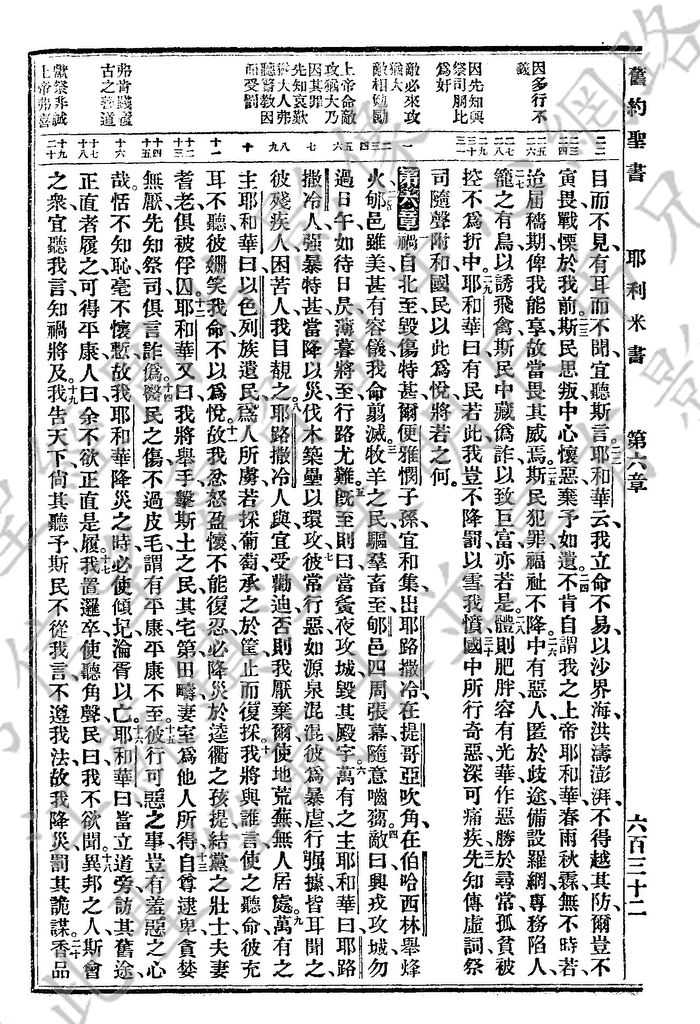 舊約聖書 耶利米書 第六章 六百三十二
目而不見有耳而不聞宜聽斯言耶和華云我立命不易以沙界海洪濤澎湃不得越其防爾豈不
寅畏戰慄於我前斯民思叛中心懷惡棄予如遺不肯自謂我之上帝耶和華春雨秋霖無不時若
迨屆穡期俾我能享故當畏其威焉斯民犯罪福祉不降中有惡人匿於歧途備設羅網專務陷人
籠之有鳥以誘飛禽斯民中藏僞詐以致巨富亦若是體則肥胖容有光華作惡勝於尋常孤貧被
控不爲折中耶和華曰有民若此我豈不降罰以雪我憤國中所行奇惡深可痛疾先知傳虛詞祭
司隨聲附和國民以此爲悅將若之何
第六章 禍自北至毀傷特甚爾便雅憫子孫宜和集出耶路撒冷在提哥亞吹角在伯哈西林舉烽
火郇邑雖美甚有容儀我命翦滅牧羊之民驅羣畜至郇邑四周張幕隨意嚙芻敵曰興戎攻城勿
過日午如待日昃薄暮將至行路尤難旣至則曰當夤夜攻城毀其殿宇萬有之主耶和華曰耶路
撒冷人强暴特甚當降以災伐木築壘以環攻彼常行惡如源泉混混彼爲暴虐行强據皆耳聞之
彼殘疾人困苦人我目覩之耶路撒冷人與宜受勸迪否則我厭棄爾使地荒蕪無人居處萬有之
主耶和華曰以色列族遺民爲人所虜若採葡萄承之於筐止而復採我將與誰言使之聽命彼充
耳不聽彼姍笑我命不以爲悅故我忿怒盈懷不能復忍必降災於逵衢之孩提結黨之壯士夫妻
耆老俱被俘囚耶和華又曰我將舉手擊斯土之民其宅第田疇妻室爲他人所得自尊逮卑貪婪
無厭先知祭司俱言詐僞醫民之傷不過皮毛謂有平康平康不至彼行可惡之事豈有羞惡之心
哉恬不知恥毫不懷慙故我耶和華降災之時必使傾圮淪胥以亡耶和華曰當立道旁訪其舊途
正直者履之可得平康人曰余不欲正直是履我置邏卒使聽角聲民曰我不欲聞異邦之人斯會
之衆宜聽我言知禍將及我告天下尚其聽予斯民不從我言不遵我法故我降災罰其詭謀香品
因多行不義
因先知與祭司朋比爲好
敵必來攻猶大
敵相勉勵
上帝命敵攻猶大乃因其罪
先知哀歎猶大人弗聽警教因而受罰
弗肯踐履古之善道
獻祭非誠上帝弗喜